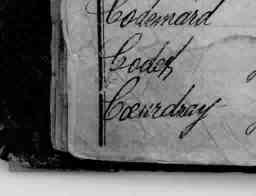 Codemard
Codet
Cœurdray